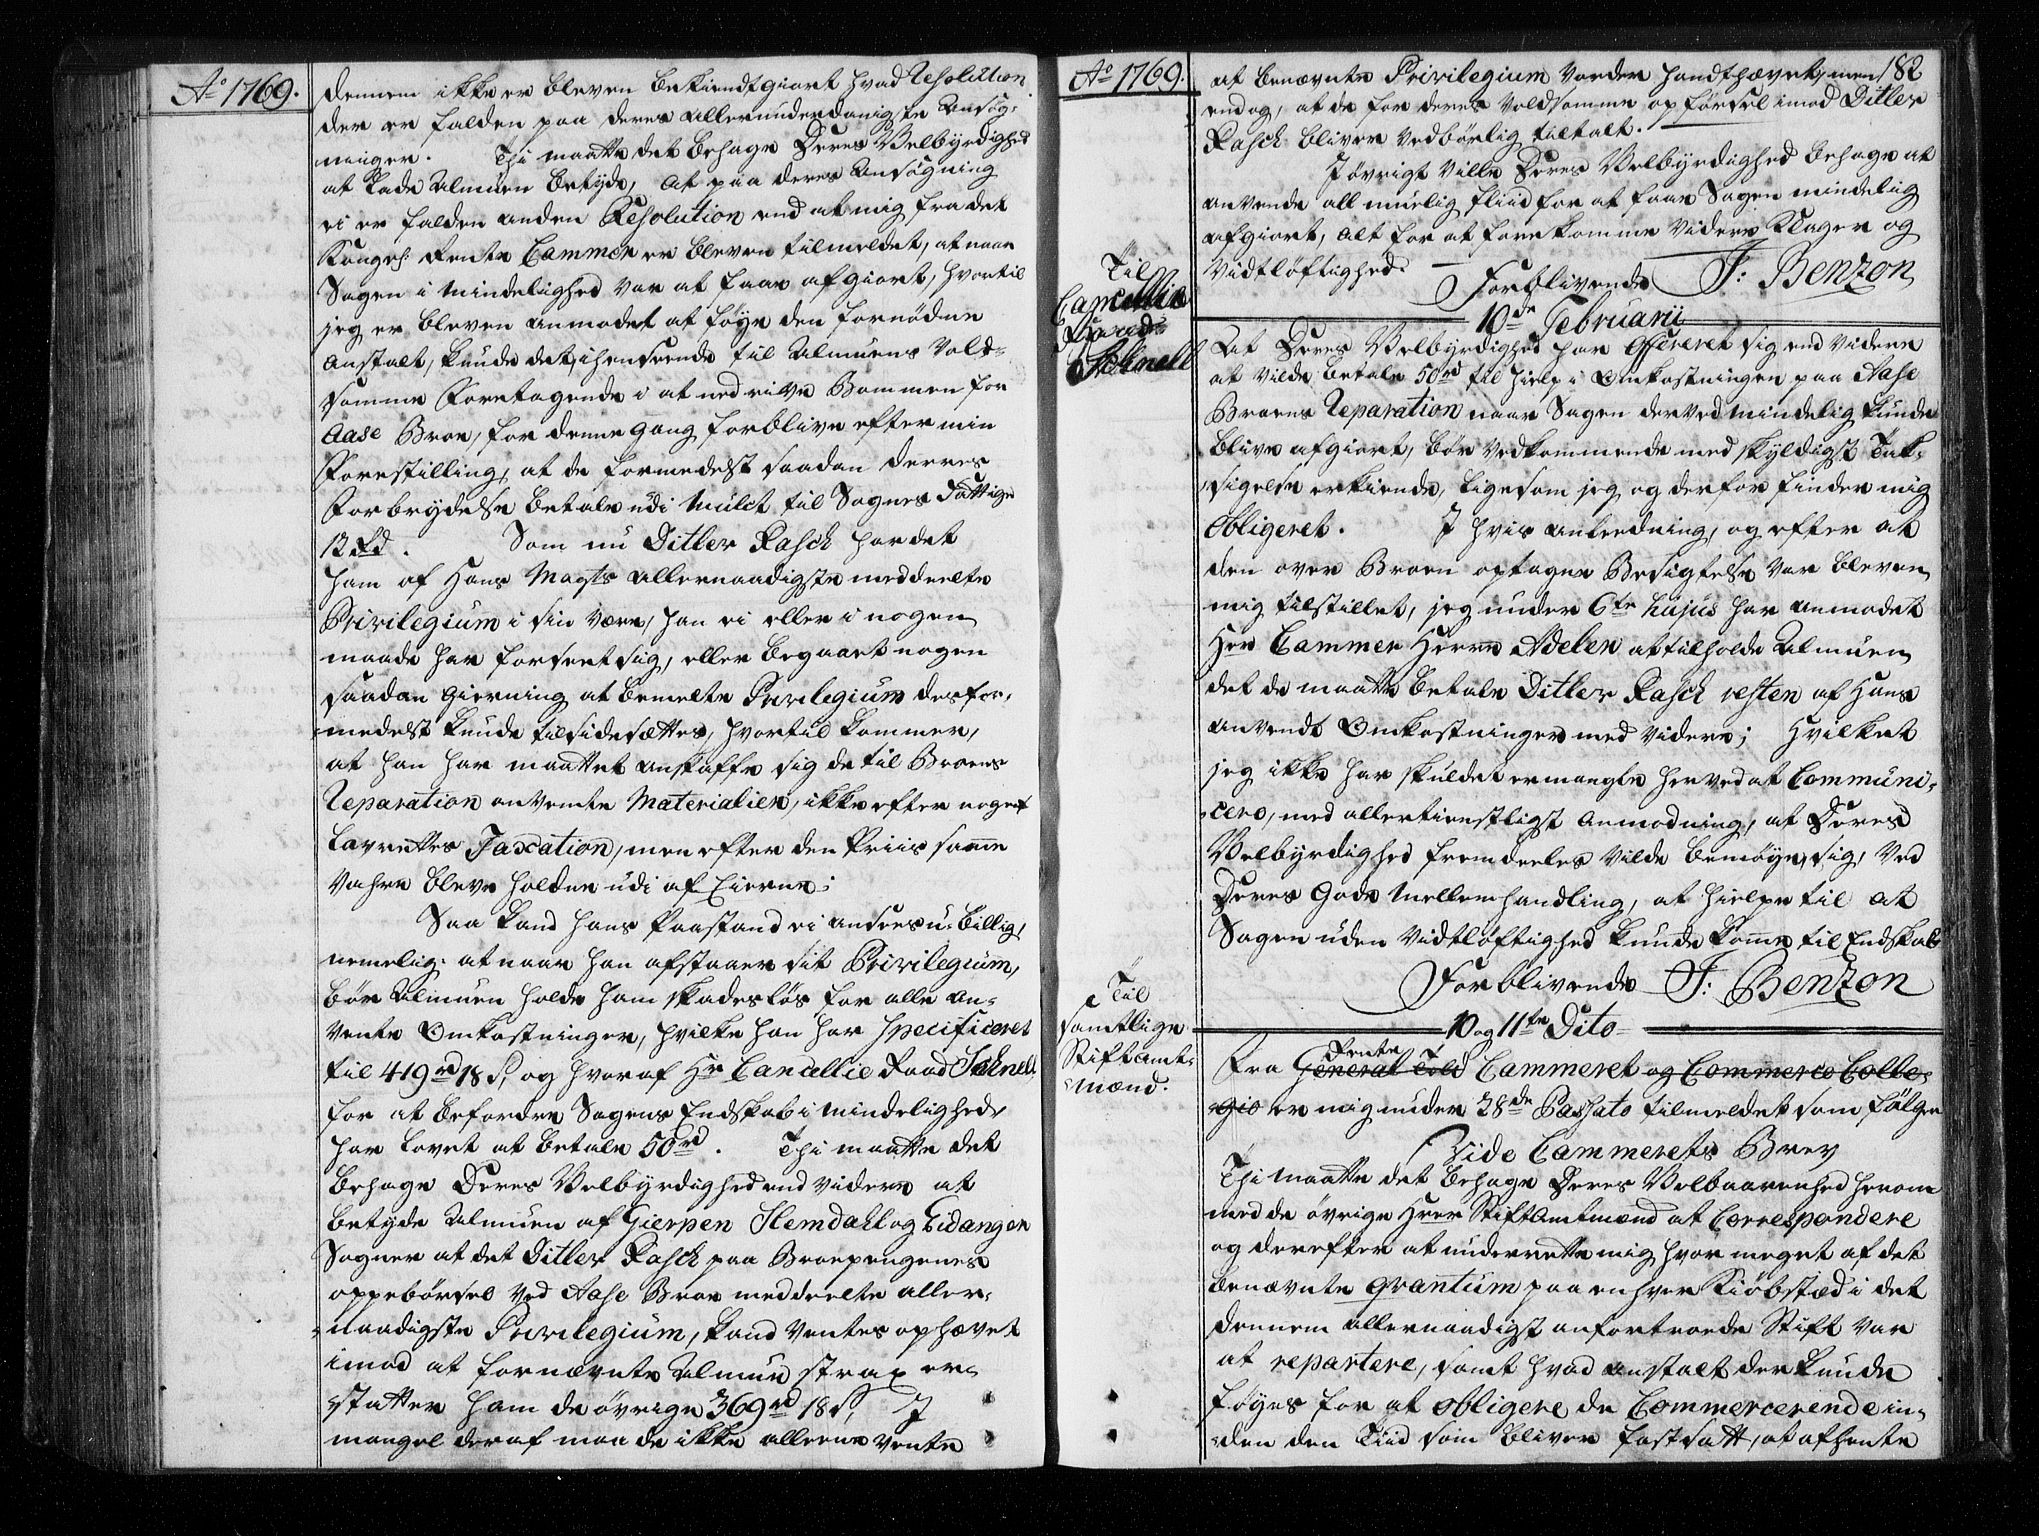 Ao 1769.
dennem ikke er bleven bekiendtgiort hvad Resolution
der er falden paa deres allerunderdanigste Ansøg-
ninger. Thi maatte det behage Deres Velbyrdighed
at lade Almuen betyde, at paa deres Ansøgning
ei er falden anden Resolution end at mig fra det
Kongel: Rente Cammer er bleven tilmeldet, at naar
Sagen i Mindelighed var at faae afgiort, hvortil
jeg er bleven anmodet at føye den fornødne
Anstalt, kunde det, i henseende til Almuens Vold-
somme Foretagende i at nedrive Bommen for
Aase Broe, for denne gang forblive efter min
Forestilling, at de formedelst saadan deres
Forbrydelse betale udi Mulct til Sognes Fattige
12 Rd. Som nu Ditler Rasch har det
ham af Hans Mayts allernaadigste meddeelte
Privilegium i sin være, han ei eller i nogen
maade har forseet sig, eller begaaet nogen
saadan Gierning at bemelte Privilegium desfor-
medelst kunde tilsidesættes, hvortil kommer,
at han har maattet anskaffe sig de til Broens
Reparation anvendte Materialier, ikke efter noget
Lavrettes Taxation, men efter den Priis samme
Vahre bleve holdne udi af Eierne;
Saa kand hans Paastand ei ansees u-billig,
nemelig: at naar han afstaaer sit Privilegium,
bør Almuen holde ham skadesløs for alle an-
vente Omkostninger, hvilke han har Specificeret
til 419 rd 18 s, og hvoraf Hr Cancellie Raad Schnell
for at befordre Sagens Endskab i Mindelighed,
har lovet at betale 50 rd. Thi maatte det
behage Deres Velbyrdighed end videre at
betyde Almuen af Gierpen Slemdahl og Eidanger
Sogner at det Ditler Rasch paa Broepengenes
oppebørsel ved Aase Broe meddeelte aller-
naadigste Privilegium, kand ventes ophævet
imod at fornævnte Almue strax er-
statter ham de øvrige 369 rd 18 s, I
mangel deraf maa de ikke alleene vente
Ao 1769.
182
at benævnte Privilegium vorder handthævet, men
endog, at de for deres voldsomme opførsel imod Ditler
Rasch bliver vedbørlig tiltalt.
I øvrigt ville Deres Velbyrdighed behage at
anvende all muelig Fliid for at faae Sagen mindelig
afgiort, alt for at forekomme videre Klager og
Vidtløftighed.
Forblivende J: Benzon
10de Februarii
Til
Cancellie
Raad
Schnell
At Deres Velbyrdighed har Offereret sig end videre
at vilde betale 50 rd til hielp i Omkostningen paa Aase
Broens Reparation naar Sagen derved mindelig kunde
blive afgiort, bør vedkommende med skyldigst Tak-
sigelse erkiende, ligesom jeg og derfor finder mig
Obligeret. I hvis anleedning, og efter at
den over Broen optagne Besigtelse var bleven
mig tilstillet, jeg under 6te hujus har anmodet
Herr Cammer Herre Adeler at tilholde Almuen
det de maatte betale Ditler Rasch resten af Hans
anvendt Omkostninger med videre; Hvilket
jeg ikke har skuldet ermangle herved at Communi-
cere, med allertienstligst Anmodning, at Deres
Velbyrdighed fremdeeles vilde bemøye sig, ved
Deres Gode Mellemhandling, at hielpe til at
Sagen uden Vidtløftighed kunde komme til Endskab
Forblivende J: Benzon
10 og 11te Dito
Til
samtlige
Stiftamt-
mænd.
Rente
Fra General Told Cammeret og Commerce Colle-
gio er mig under 28de Passato tilmeldet som følger
Vide Cammerets Brev
Thi maatte det behage Deres Velbaarenhed herom
med de øvrige Herr Stiftamtmænd at Correspondere
og derefter at underrette mig, hvor meget af det
benævnte Qvantum paa enhver Kiøbstæd i det
dennem allernaadigst anfortroede Stift var
at repartere, samt hvad anstalt der kunde
føyes for at obligere de Commercerende in-
den den Tiid som bliver fastsatt, at afhente